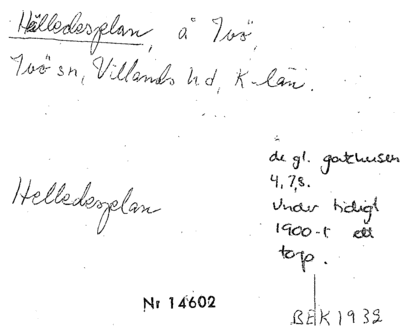 Hälledesplan, å Ivö,
Ivö sn, Villands hd, K-län.
de gl. gatehusen
4, 7, 8.
Under tidigt
1900-t ett
torp.
Helledesplan
Nr 14602
BEK 1932